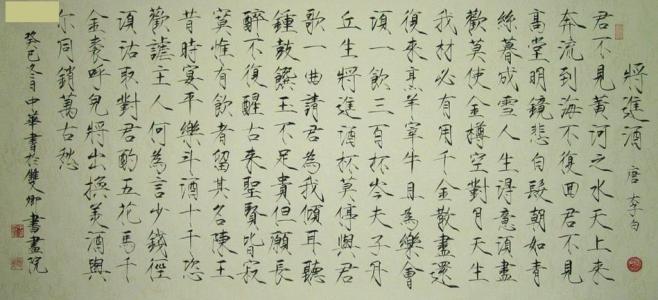 將進酒 唐 李白
君不見黃河之水天上來
奔流到海不復回君不見
高堂明鏡悲白髮朝如青
絲暮成雪人生得意須盡
歡莫使金樽空對月天生
我材必有用千金散盡還
復來烹羊宰牛且為樂會
須一飲三百杯岑夫子丹
丘生將進酒杯莫停與君
歌一曲請君為我傾耳聽
鍾鼓饌玉不足貴但願長
醉不復醒古來聖賢皆寂
寞惟有飲者留其名陳王
昔時宴平樂斗酒十千恣
歡謔主人何為言少錢徑
須沽取對君酌五花馬千
金裘呼兒將出換美酒與
尔同銷萬古愁
癸巳冬月中華書於雙書畫院